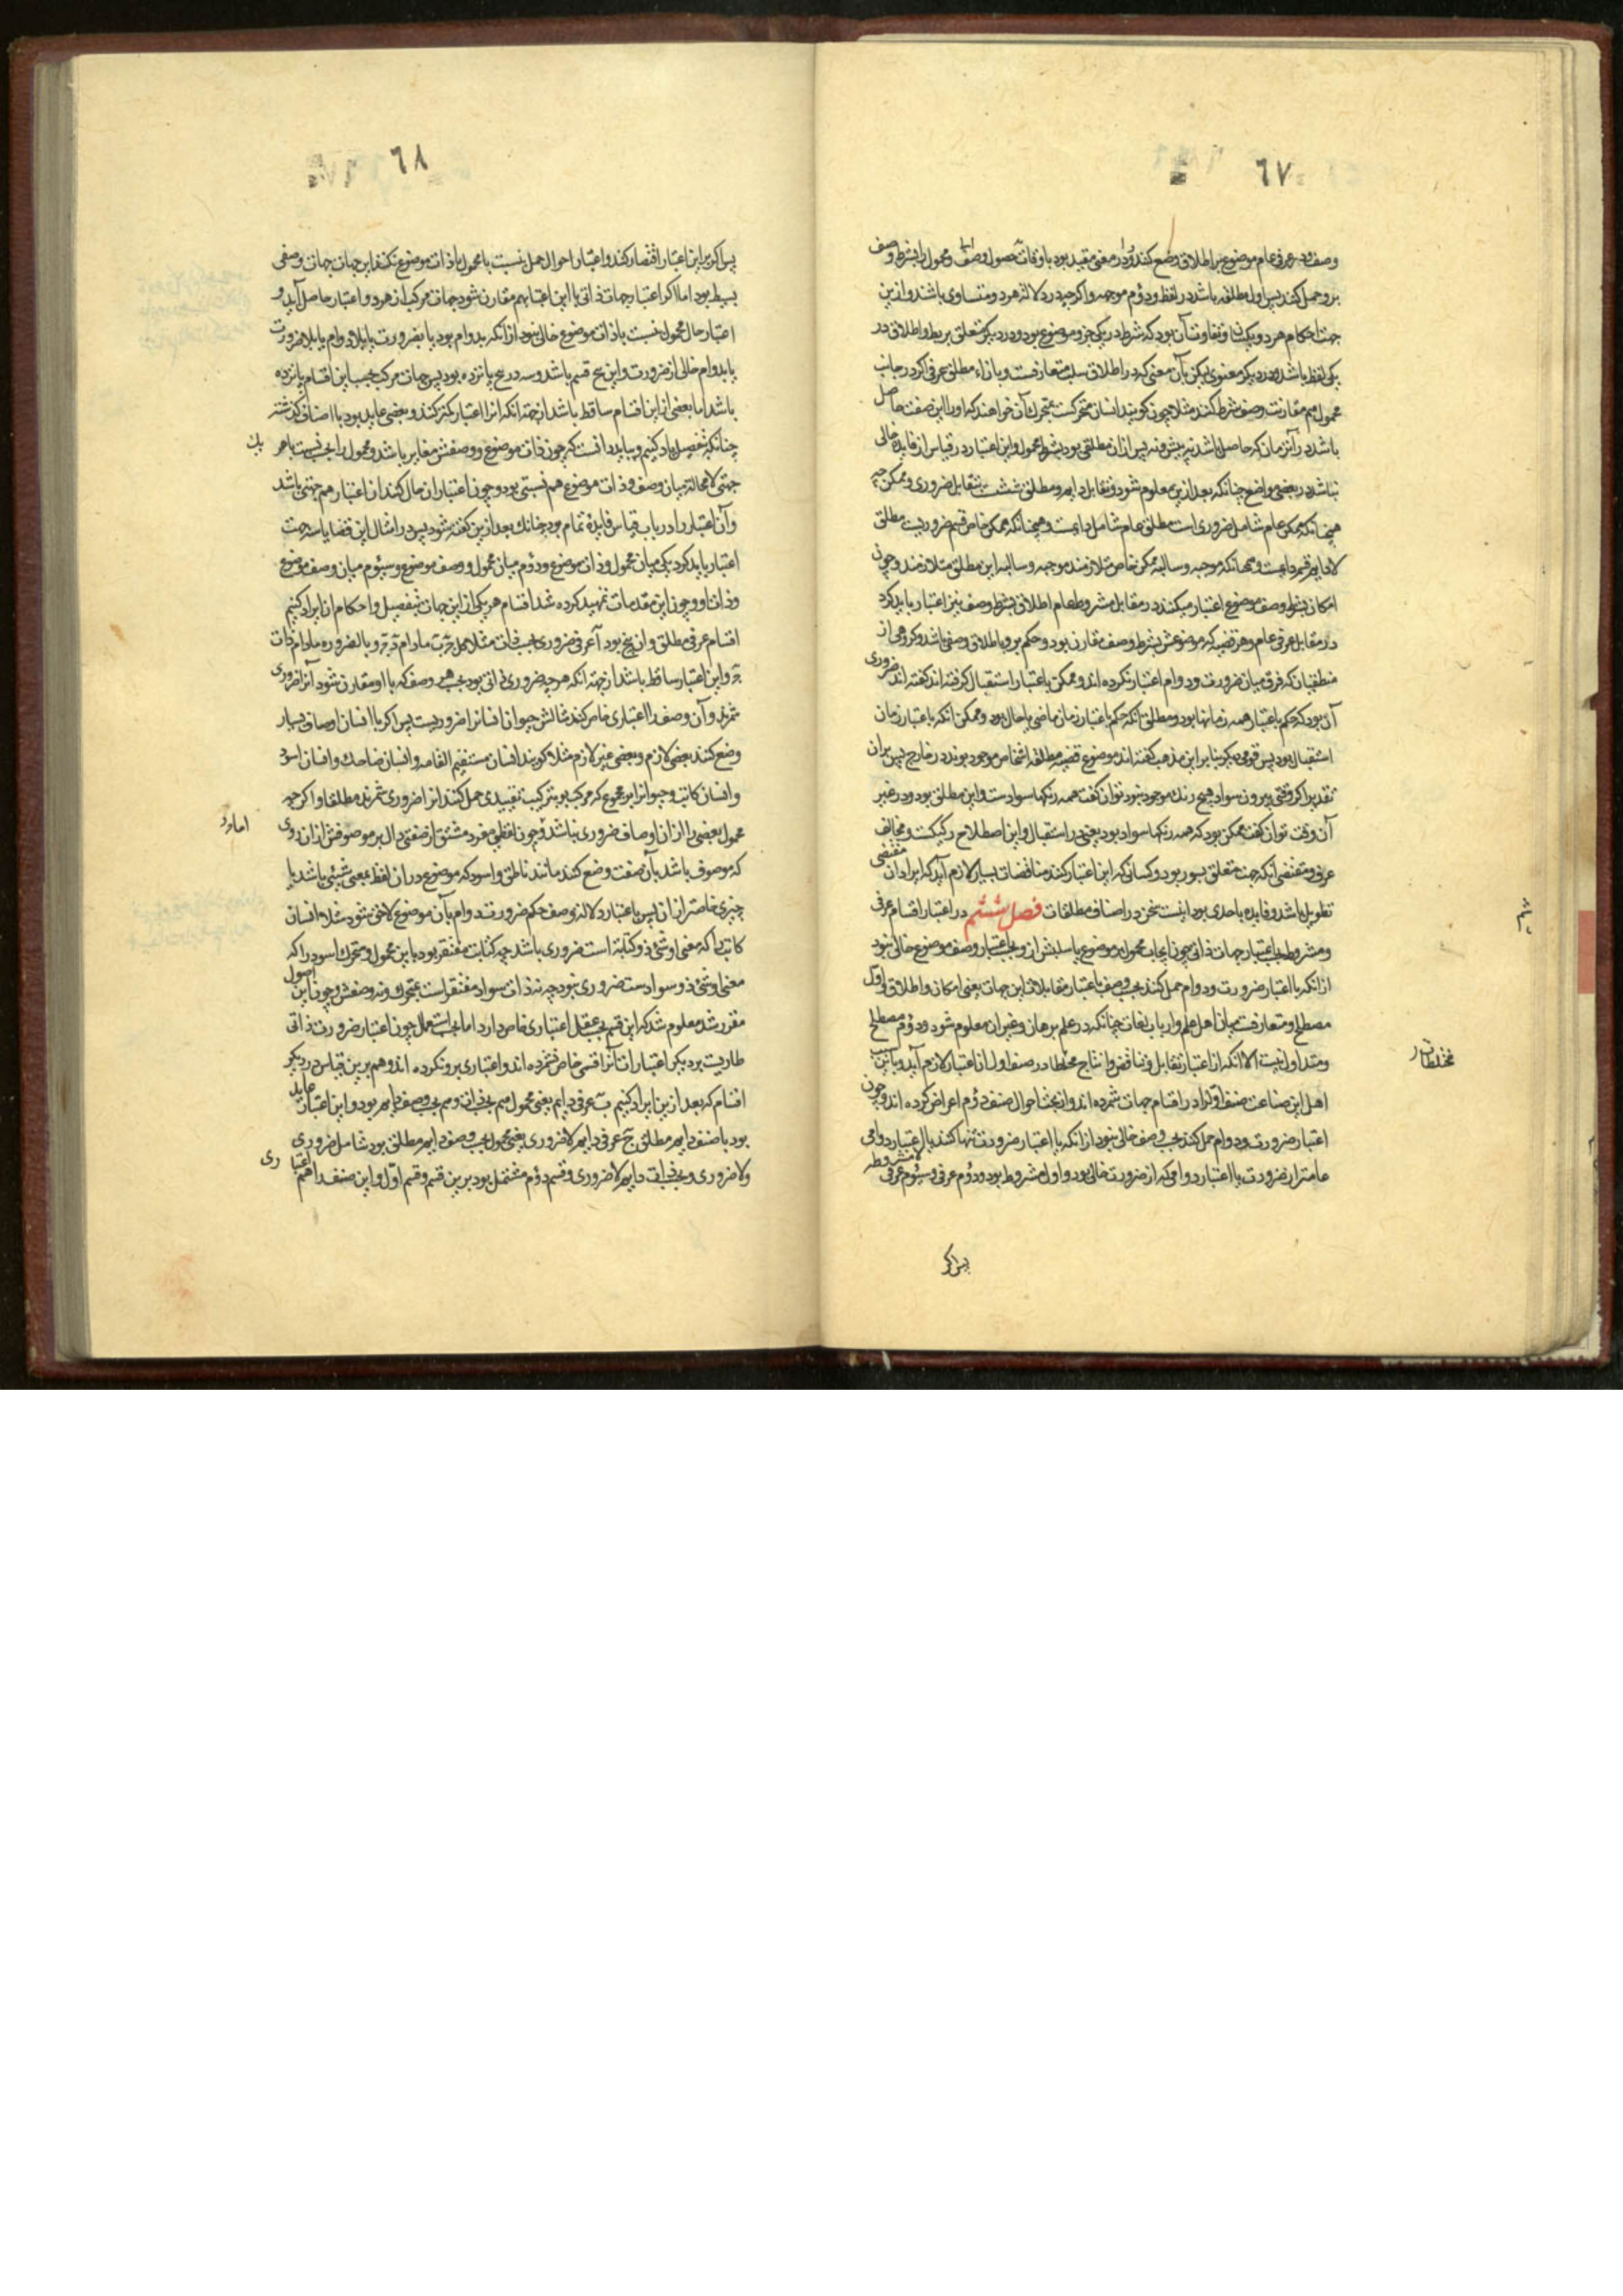 ٦٧
وصف و در عرفی عام موضوع بر اطلاق وضع کنند و در معنی مقید بود باوقات حصول وصف و محمول را بشرط وصف
برو حمل کنند پس اول مطلقه باشد در لفظ و دوم موجهه و اکرچه در دلالة هر دو متساوی باشند و ازین
جهت احکام هر دو یکیست و تفاوت آن بود که شرط در یکی جزو موضوع بود و در دیکر متعلق بربط و اطلاق در
یکی لفظی باشد و در دیکر معنوی لیکن بآن معنی که در اطلاق سلب متعارفست و بازاء مطلق عرفی اکر در جانب
محمول هم مقارنت وصف شرط کنند مثلا چون کویند انسان متحرکست بمتحرک آن خواهند که او را این صفت حاصل
باشد در آنزمان که حاصل باشد نه پیش و نه پس ازان مطلقی بود بشرط محمول و این اعتبار در قیاس از فایده خالی
نباشد در بعضی مواضع چنانکه بعد ازین معلوم شود و تقابل دایم و مطلق ششت بتقابل ضروری و ممکن چه
همچنانکه ممکن عام شامل ضروری است مطلق عام شامل دایمست و همچنانکه ممکن خاص قسیم ضروریست مطلق
لادایم قسیم دایمست و همچنانکه موجبه و سالبه ممکن خاص متلازمند موجبه و سالبه این مطلق متلازمند و چون
امکان بشرط وصف موضوع اعتبار میکنند در مقابل مشروطه عام اطلاق بشرط وصف نیز اعتبار باید کرد
در مقابل عرفی عام و هر قضیه که موضوعش بشرط وصف مقارن بود و حکم برو باطلاق وصفی باشد و کروهی از
منطقیان که فرق میان ضرورت و دوام اعتبار نکرده اند و ممکن باعتبار استقبال کرفته اند کفته اند ضروری
آن بود که حکم باعتبار همه زمانها بود و مطلق آنکه حکم باعتبار زمان ماضی یا حال بود و ممکن آنکه باعتبار زمان
استقبال بود پس قومی دیکر بنا بر این مذهب کفته اند موضوع قضیه مطلقه اشخاص موجود بوند در خارج پس بران
تقدیر اکر وقتی بیرون سواد هیچ رنک موجود نبود توان کفت همه رنکها سوادست و این مطلق بود و در غیر
آن وقت توان کفت ممکن بود که همه رنکها سواد بود یعنی در استقبال و این اصطلاح رکیکست و مخالف
عرف و مقتضی آنکه جهت متعلق بسور بود و کسانی که این اعتبار کنند مناقضات بسیار لازم آید که ایراد آن مقتضی
تطویل باشد و فایده باحدی بود اینست سخن در اصناف مطلقات فصل ششم در اعتبار اقسام عرفی
و مشروط بحسب اعتبار جهات ذاتی چون ایجاب محمول بر موضوع یا سلبش ازو بحسب اعتبار وصف موضوع خالی نبود
ازانکه یا اعتبار ضرورت و دوام حمل کنند بحسب وصف یا اعتبار مقابلات این جهات یعنی امکان و اطلاق و اول
مصطلح و متعارفست میان اهل علم و ارباب لغات چنانکه در علم برهان و غیر آن معلوم شود و دوم مصطلح
و متداول نیست الا آنکه از اعتبار تقابل و تناقض و انتاج مختلطات در صنف اول آن اعتبار لازم آید و باین سبب
اهل این صناعت صنف اول را در اقسام جهات شمرده اند و از بحث احوال صنف دوم اعراض کرده اند و چون
اعتبار ضرورت و دوام حمل کنند بحسب وصف خالی نبود ازانکه یا اعتبار ضرورت تنها کنند یا اعتبار دوامی
عامتر از ضرورت یا اعتبار دوامی که از ضرورت خالی بود و اول مشروط بود و دوم عرفی و سیوم عرفی لامشروطه
مختلطات
پس اکر
٦٨
پس اکر برین اعتبار اقتصار کنند و اعتبار احوال حمل نسبت با محمول با ذات موضوع نکنند این جهات جهات وصفی
بسیط بود اما اکر اعتبار جهات ذاتی با این اعتبار بهم مقارن شود جهات مرکب از هر دو اعتبار حاصل آید و
اعتبار حال محمول نسبت با ذات موضوع خالی نبود ازانکه بدوام بود یا بضرورت یا بلادوام یا بلاضرورت
یا بدوام خالی از ضرورت و این پنج قسم باشد و سه در پنج پانزده بود پس جهات مرکب بحسب این اقسام پانزده
باشد اما بعضی از این اقسام ساقط باشد از جهة آنکه آنرا اعتبار کمتر کنند و بعضی عاید بود با اصناف کذشته
چنانکه بتفصیل یاد کنیم و بباید دانست که چون ذات موضوع و وصفش مغایر باشد و محمول را بحسب نسبت با هر یک
جهتی لامحالة میان وصف و ذات موضوع هم نسبتی بود و چون اعتبار آن حال کنند آن اعتبار هم جهتی باشد
و آن اعتبار را در باب قیاس فایدهٔ تمام بود چنانک بعد ازین کفته شود پس در امثال این قضایا سه جهت
اعتبار باید کرد یکی میان محمول و ذات موضوع و دوم میان محمول و وصف موضوع و سیوم میان وصف موضوع
و ذات او و چون این مقدمات تمهید کرده شد اقسام هر یکی از این جهات بتفصیل و احکام آن ایراد کنیم
اقسام عرفی مطلق و آن پنج بود آ عرفی ضروری بحسب ذات مثلا کل ج ب مادام ج و بالضروره مادام ذات
ج و این اعتبار ساقط باشد از جهة آنکه هرچه ضروری ذاتی بود بحسب همه وصف که با او مقارن شود آنرا ضروری
شمرند و آن وصف را اعتباری خاص نکنند مثالش حیوان انسانرا ضروریست پس اکر با انسان اوصاف بسیار
وضع کنند بعضی لازم و بعضی غیر لازم مثلا کویند انسان مستقیم القامه و انسان ضاحک و انسان اسود
و انسان کاتب و حیوانرا بر مجموع که مرکب بود بترکیب تقییدی حمل کنند آنرا ضروری شمرند مطلقا و اکرچه
محمول بعضی را ازان اوصاف ضروری نباشد و چون لفظی مفرد مشتق از صفتی دال بر موصوفش ازان روی
که موصوف باشد بآن صفت وضع کنند مانند ناطق و اسود که موضوع دران لفظ بمعنی شیئی باشد یا
چیزی خاصتر ازان پس باعتبار دلالة وصف حکم ضرورت و دوام بآن موضوع لاحق شود مثلا انسان
کاتب را که معنی او شئ ذو کتابة است ضروری باشد چه کتابت مفتقر بود باین محمول و متحرک اسود را که
معنی او شئ ذو سوادست ضروری نبود چه نه ذات سواد مفتقر است بمتحرک و نه وصفش و چون این اصول
مقرر شد معلوم شد که این قسم بحسب عقل اعتباری خاص دارد اما بحسب استعمال چون اعتبار ضرورت ذاتی
طاریست بر دیکر اعتبارات آنرا قسمی خاص نشمرده اند و اعتباری برو نکرده اند و هم برین قیاس در دیکر
اقسام که بعد ازین ایراد کنیم ب عرفی دایم یعنی محمول هم بحسب ذات و هم بحسب وصف دایم بود و این اعتبار عاید
بود با صنف دایم مطلق ج عرفی دایم لاضروری یعنی محمول بحسب وصف دایم مطلق بود شامل ضروری
و لاضروری و بحسب ذات دایم لاضروری و قسم دوم مشتمل بود برین قسم و قسم اول و این صنف را هم اعتباری